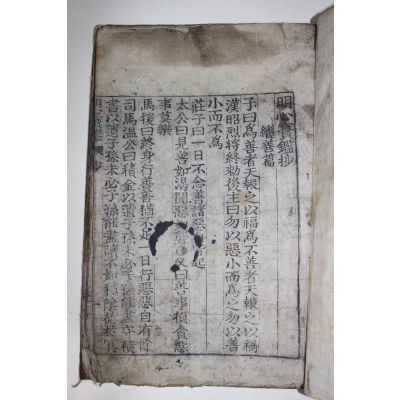 明心寶鑑抄
繼善篇
子曰爲善者天報之以福爲不善者天報之以禍
漢昭烈將終勑後主曰勿以惡小而爲之勿以善
小而不爲
莊子曰一日不念善諸惡自起
太公曰見善如渴聞惡如聾又曰善事須貪惡
事莫樂
馬援曰終身行善善猶不足一日行惡惡自有餘
司馬溫公曰積金以遺子孫未必子孫能盡守積
書以遺子孫未必子孫能盡讀不如積陰德於冥